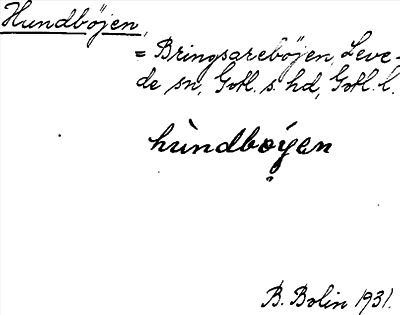 Hundböjen,
= Bringsareböjen, Leve-
de sn, Gotl. s. hd, Gotl. l.
hùndbǫ́yen
B. Bolin 1931.